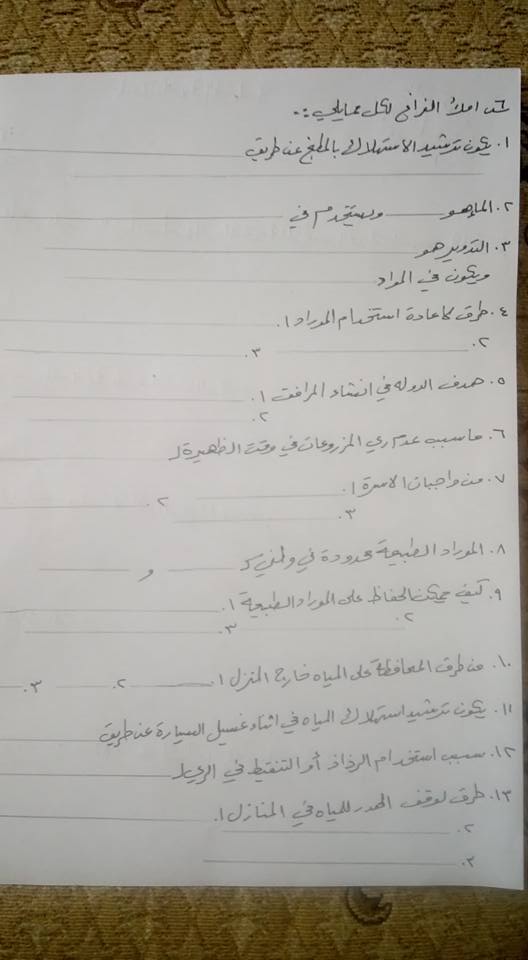 املأ الفراغ لكل ممايلي :-
١. يكون ترشيد الاستهلاك بالمطبخ عن طريق
٢. الماء هو ويستخدم في
٣. التدوير هو
ويكون في المواد
٤. طرق لاعادة استخدام الموراد ١.
٢. ٣.
٥. هدف الدوله في انشاء المرافق ١.
٢.
٦. ماسبب عدم ري المزروعات في وقت الظهيرة
٧. من واجبات الاسرة ١. ٢.
٣.
٨. الموراد الطبيعية محدودة في وطني و
٩. كيف يمكن الحفاظ على الموراد الطبيعية ١.
٢. ٣.
١٠. من طرق المحافظة على المياه خارج المنزل ١. ٢. ٣.
١١. يكون ترشيد استهلاك المياه في اثناء غسيل السيارة عن طريق
١٢. سبب استخدام الرذاذ أو التنقيط في الري
١٣. طرق لوقف الهدر للمياه في المنازل ١.
٢.
٣.